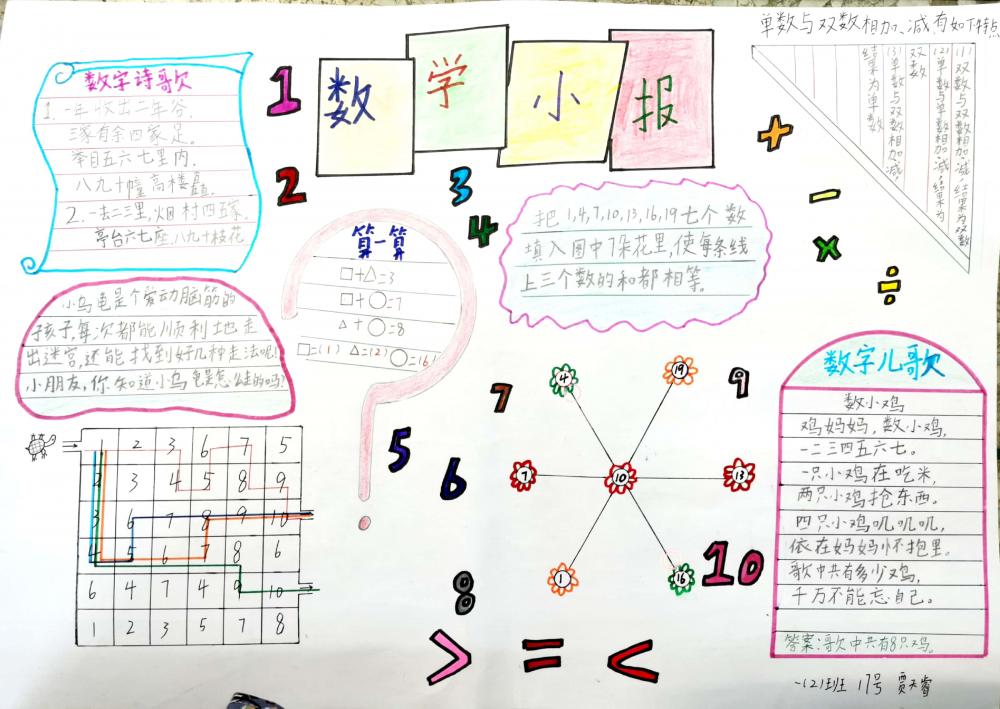 数学小报
数字诗歌
1. 一年收出二年谷,
三家有余四家足。
举目五六七里内,
八九十幢高楼矗。
2. 一去二三里,烟村四五家,
亭台六七座,八九十枝花
单数与双数相加、减有如下特点
(1)双数与双数相加减,结果为双数
(2)单数与单数相加减,结果为
双数
(3)单数与双数相加减,
结果为单数
1
2
3
4
+
−
×
÷
算一算
□+△=3
□+○=7
△+○=8
□=(1) △=(2) ○=(6)
把1,4,7,10,13,16,19七个数
填入图中7朵花里,使每条线
上三个数的和都相等。
小乌龟是个爱动脑筋的
孩子,每次都能顺利地走
出迷宫,还能找到好几种走法呢!
小朋友,你知道小乌龟是怎么走的吗?
1 2 3 6 7 5
2 3 4 5 8 9
3 6 7 8 9 10
4 5 6 7 8 6
6 4 7 4 9 10
1 2 3 5 7 8
5
6
7
8
9
10
4 19
7 10 13
1 16
> = <
数字儿歌
数小鸡
鸡妈妈,数小鸡,
一二三四五六七。
一只小鸡在吃米,
两只小鸡抢东西。
四只小鸡叽叽叽,
依在妈妈怀抱里。
歌中共有多少鸡,
千万不能忘自己。
答案:歌中共有8只鸡。
一(2)班 17号 贾天睿